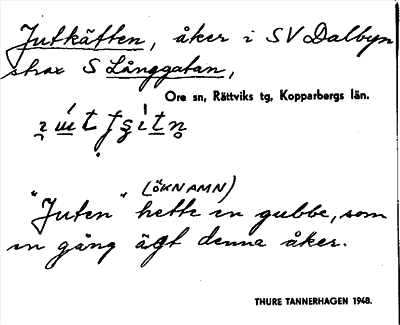 Jutkätten, åker i SV Dalbyn
strax S Långgatan,
Ore sn, Rättviks tg, Kopparbergs län.
(ÖKNAMN)
"Juten" hette en gubbe, som
en gång ägt denna åker.
THURE TANNERHAGEN 1948.